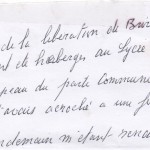 de la libération de
de hoeberges au Lycée
peau du parti Commun
j'avais accroché a une f
ndemain m'étant renc